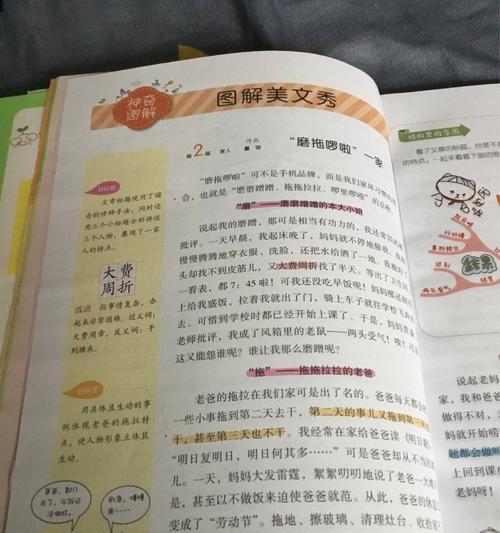 神奇
图解
图解美文秀
第2篇 家人
河北 董琛
“磨拖啰啦”一家
“磨拖啰啦”可不是手机品牌，而是我们家坏习惯的
合，也就是“磨磨蹭蹭、拖拖拉拉、啰里啰唆”的总称
“磨”——磨磨蹭蹭的本大小姐
说起我的磨蹭，那可是相当有功力的，我还常因此
批评。一天早晨，我起床晚了，妈妈就不停地催我。
慢慢腾腾地穿衣服、洗脸，还把水给洒了一地。我
头却找不到皮筋儿，又大费周折找了半天。等出了卫生
一看表，都7：45啦！可我还没吃早饭呢！妈妈
上给我盛饭，拉着我就出了门，骑上车子就往学校飞奔
去。可惜到学校时都已经开始上课了。于是，妈妈责
老师批评，我成了风箱里的老鼠——两头受气！唉！可
这又能怨谁呢？谁让我那么磨蹭呢！
“拖”——拖拖拉拉的老爸
老爸的拖拉在我们家可是出了名的。爸爸每天都
一些小事拖到第二天去干，第二天的事儿又拖到第三天
干，甚至第三天也不干。我经常在家给爸爸读《明日歌》
“明日复明日，明日何其多……”可是爸爸从
一天，妈妈大发雷霆，絮絮叨叨地说了老爸一大
是，甚至以不做饭来迫使爸爸就范。从此，爸爸的休息
变成了“劳动节”。拖地、擦玻璃、清理灶台、收拾
好标题
文章标题使用了谐
音的修辞手法，同时还
用三个小标题分别讲述
三个人物，展现了一家
人的特点。
大费
周折
成语 指事情复杂，办
起来非常困难。近义词：
大费周章，反义词：手
到擒来。
好例子
用具体且生动的事
例体现老爸的拖拉特
点，使人物形象立体且
生动。
结构思维导图
看了文章的标题，你是
的特点，一起来看看下面的
结果
说起老妈
做得不对，
妈就开始唠
她都会做出
上回到课
老妈呀！